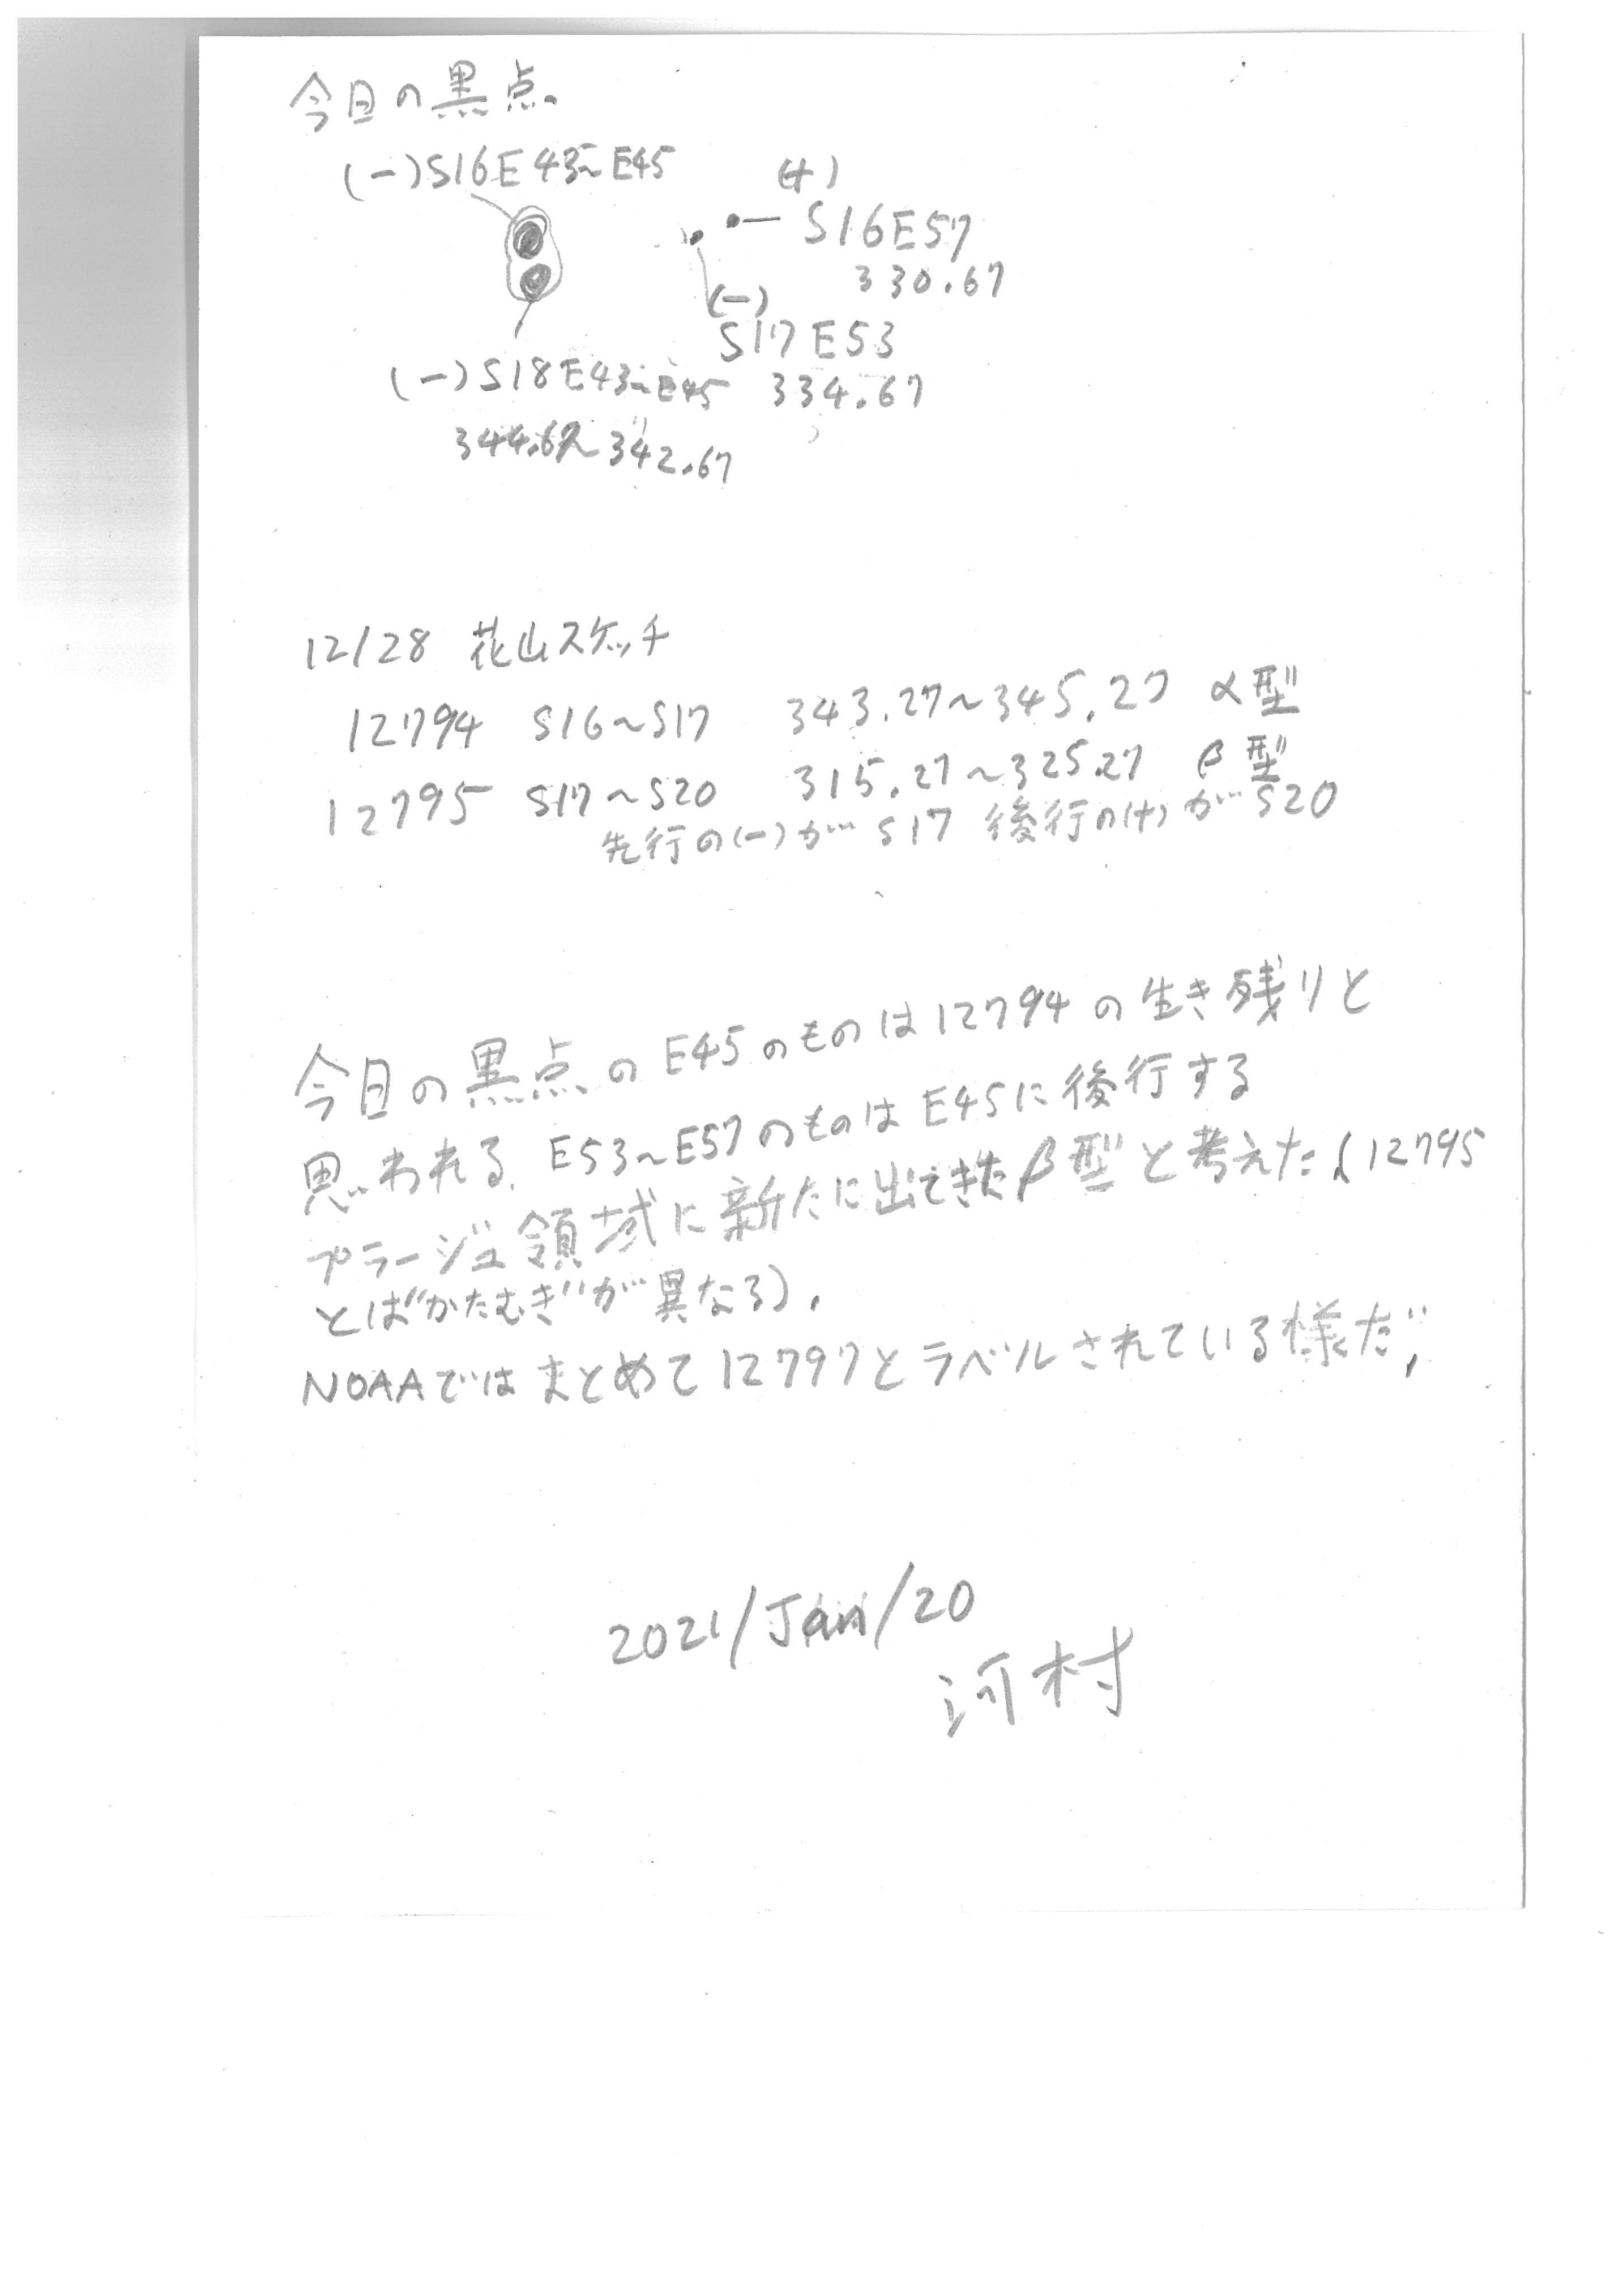 今日の黒点
(-)S16E43~E45
(+)
S16E57
330.67
(-)
S17E53
334.67
(-)S18E43~E45
344.67~342.67
12/28 花山スケッチ
12794 S16~S17 343.27~345.27 α型
12795 S17~S20 315.27~325.27 β型
先行の(-)がS17 後行の(+)がS20
今日の黒点のE45のものは12794の生き残りと
思われる. E53~E57のものはE45に後行する
プラージュ領域に新たに出てきたβ型と考えた(12795
とは"かたむき"が異なる).
NOAAではまとめて12797とラベルされている様だ,
2021/Jan/20
河村